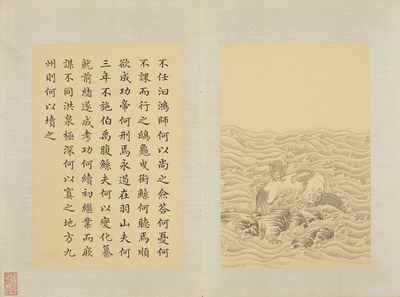 不任汨鴻師何以尚之僉答何憂何
不課而行之鴟龜曳銜鯀何聽焉順
欲成功帝何刑焉永遏在羽山夫何
三年不施伯禹腹鯀夫何以變化纂
就前緒遂成考功何續初繼業而厥
謀不同洪泉極深何以寘之地方九
州則何以墳之